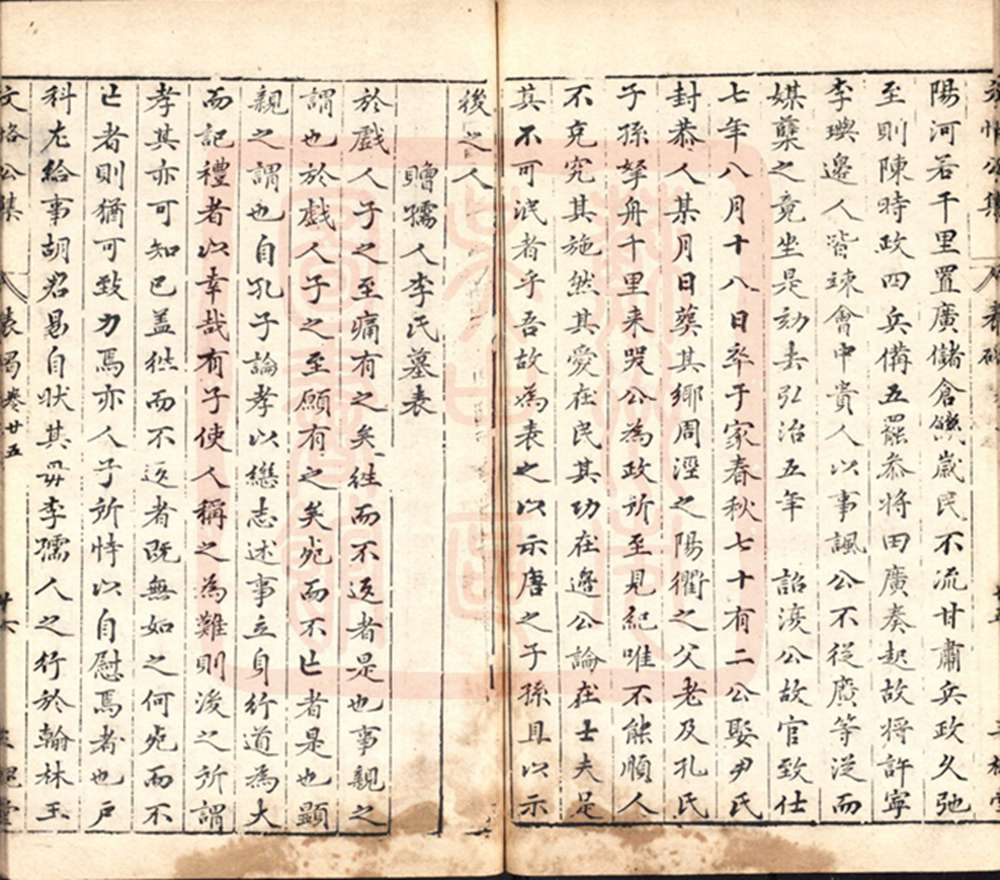 陽河若干里置廣儲倉幾歲民不流甘肅兵政久弛
至則陳時政四兵備五罷叅將田廣奏起故將許寧
李璵邊人皆竦會中貴人以事諷公不從廣等從而
媒糵之竟坐是劾去弘治五年　詔復公故官致仕
七年八月十八日卒于家春秋七十有二公娶尹氏
封恭人某月日葬其鄉周涇之陽衢之父老及孔氏
子孫拏舟千里来哭公為政所至見紀唯不能順人
不克究其施然其愛在民其功在邊公論在士夫是
其不可泯者乎吾故為表之以示唐之子孫且以示
後之人
贈孺人李氏墓表
於戲人子之至痛有之矣徃而不返者是也事親之
謂也於戲人子之至願有之矣死而不亡者是也顯
親之謂也自孔子論孝以繼志述事立身行道為大
而記禮者以幸哉有子使人稱之為難則後之所謂
孝其亦可知已盖徃而不返者既無如之何死而不
亡者則猶可致力焉亦人子所恃以自慰焉者也戶
科左給事胡君易自狀其毋李孺人之行於翰林玉
文恪公集　表碣卷廿五　廿六